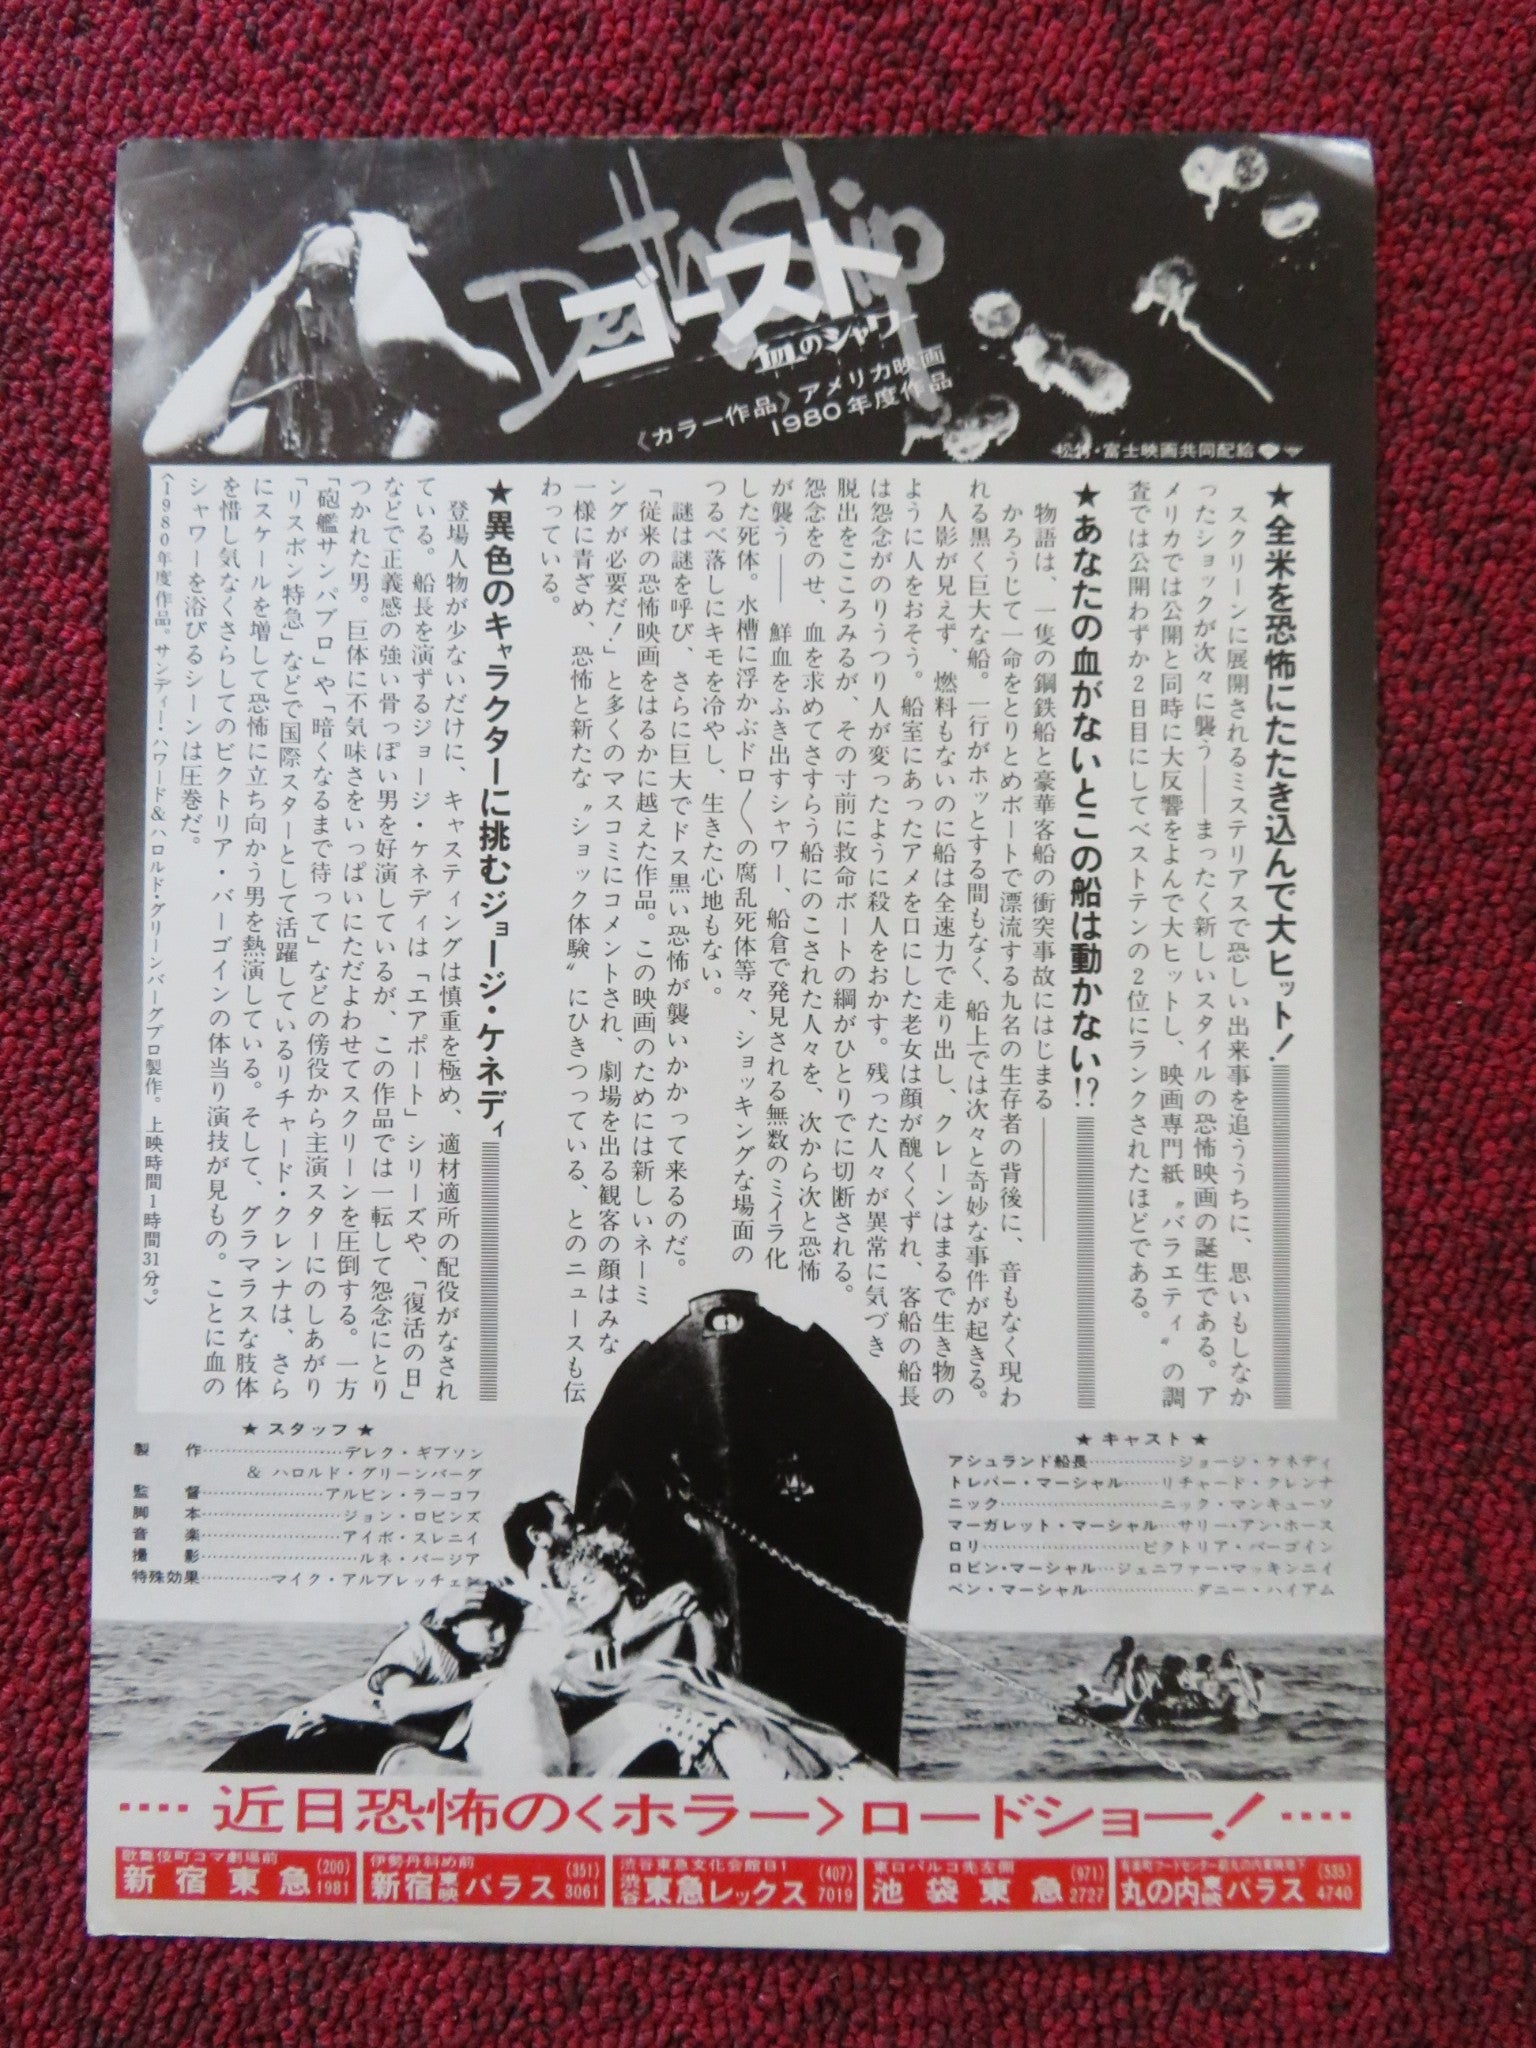 Death Ship
ゴースト
血のシャワー
〈カラー作品〉アメリカ映画
1980年度作品
松竹・富士映画共同配給
★全米を恐怖にたたき込んで大ヒット！
スクリーンに展開されるミステリアスで恐しい出来事を追ううちに、思いもしなか
ったショックが次々に襲う──まったく新しいスタイルの恐怖映画の誕生である。ア
メリカでは公開と同時に大反響をよんで大ヒットし、映画専門紙〝バラエティ〟の調
査では公開わずか2日目にしてベストテンの2位にランクされたほどである。
★あなたの血がないとこの船は動かない!?
物語は、一隻の鋼鉄船と豪華客船の衝突事故にはじまる────
かろうじて一命をとりとめボートで漂流する九名の生存者の背後に、音もなく現わ
れる黒く巨大な船。一行がホッとする間もなく、船上では次々と奇妙な事件が起きる。
人影が見えず、燃料もないのに船は全速力で走り出し、クレーンはまるで生き物の
ように人をおそう。船室にあったアメを口にした老女は顔が醜くくずれ、客船の船長
は怨念がのりうつり人が変ったように殺人をおかす。残った人々が異常に気づき
脱出をこころみるが、その寸前に救命ボートの綱がひとりでに切断される。
怨念をのせ、血を求めてさすらう船にのこされた人々を、次から次と恐怖
が襲う── 鮮血をふき出すシャワー、船倉で発見される無数のミイラ化
した死体。水槽に浮かぶドロ〱の腐乱死体等々、ショッキングな場面の
つるべ落しにキモを冷やし、生きた心地もない。
謎は謎を呼び、さらに巨大でドス黒い恐怖が襲いかかって来るのだ。
「従来の恐怖映画をはるかに越えた作品。この映画のためには新しいネーミ
ングが必要だ！」と多くのマスコミにコメントされ、劇場を出る観客の顔はみな
一様に青ざめ、恐怖と新たな〝ショック体験〟にひきつっている、とのニュースも伝
わっている。
★異色のキャラクターに挑むジョージ・ケネディ
登場人物が少ないだけに、キャスティングは慎重を極め、適材適所の配役がなされ
ている。船長を演ずるジョージ・ケネディは「エアポート」シリーズや、「復活の日」
などで正義感の強い骨っぽい男を好演しているが、この作品では一転して怨念にとり
つかれた男。巨体に不気味さをいっぱいにただよわせてスクリーンを圧倒する。一方
「砲艦サンパブロ」や「暗くなるまで待って」などの傍役から主演スターにのしあがり
「リスボン特急」などで国際スターとして活躍しているリチャード・クレンナは、さら
にスケールを増して恐怖に立ち向かう男を熱演している。そして、グラマラスな肢体
を惜し気なくさらしてのビクトリア・バーゴインの体当り演技が見もの。ことに血の
シャワーを浴びるシーンは圧巻だ。
〈1980年度作品。サンディー・ハワード&ハロルド・グリーンバーグプロ製作。上映時間1時間31分。〉
★ スタッフ ★
製　作……………デレク・ギブソン
& ハロルド・グリーンバーグ
監　督……………アルビン・ラーコフ
脚　本……………ジョン・ロビンズ
音　楽……………アイボ・スレニイ
撮　影……………ルネ・バージア
特殊効果………マイク・アルブレッチェン
★ キャスト ★
アシュランド船長……………ジョージ・ケネディ
トレバー・マーシャル……リチャード・クレンナ
ニック……………………ニック・マンキューソ
マーガレット・マーシャル…サリー・アン・ホース
ロリ……………………ビクトリア・バーゴイン
ロビン・マーシャル…ジェニファー・マッキンニイ
ベン・マーシャル……………ダニー・ハイアム
‥‥近日恐怖の〈ホラー〉ロードショー！‥‥
歌舞伎町コマ劇場前
新宿東急 (200) 1981
伊勢丹斜め前
新宿東映パラス (351) 3061
渋谷東急文化会館B1
渋谷東急レックス (407) 7019
東口パルコ先左側
池袋東急 (971) 2727
丸の内東映パラス (535) 4740